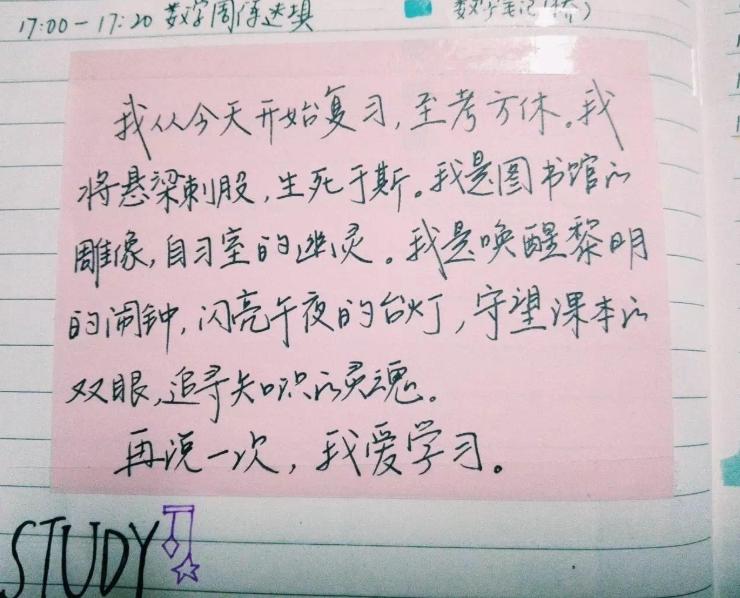 17:00-17:20 数学周保速填
数学笔记(
我从今天开始复习,至考方休。我
将悬梁刺股,生死于斯。我是图书馆的
雕像,自习室的幽灵。我是唤醒黎明
的闹钟,闪亮午夜的台灯,守望课本的
双眼,追寻知识的灵魂。
再说一次,我爱学习。
STUDY